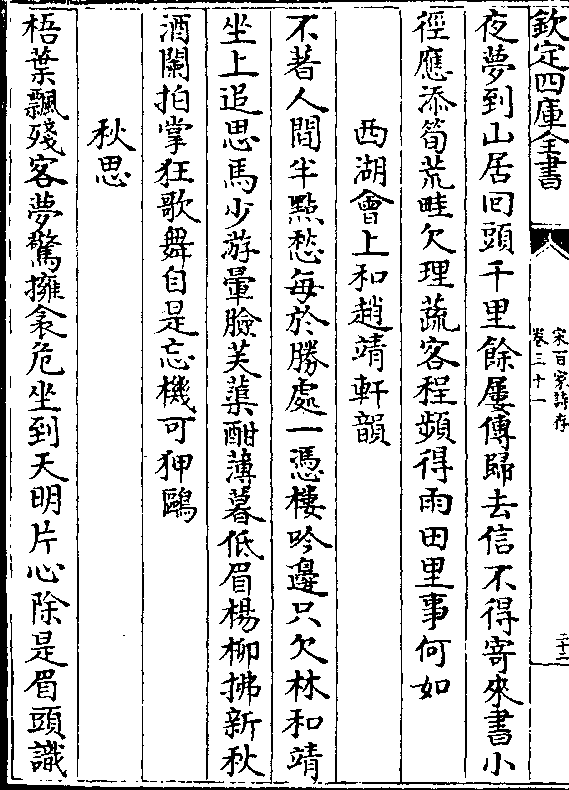 欽定四庫全書
宋百家詩存
卷三十一
二十二
夜夢到山居回頭千里餘屢傳歸去信不得寄來書小
徑應添筍荒畦欠理蔬客程頻得雨田里事何如
西湖會上和趙靖軒韻
不著人間半㸃愁每於勝處一憑樓吟邊只欠林和靖
坐上追思馬少游暈臉芙蕖酣薄暮低眉楊柳拂新秋
酒闌拍掌狂歌舞自是忘機可狎鷗
秋思
梧葉飄殘客夢驚擁衾危坐到天明片心除是眉頭識